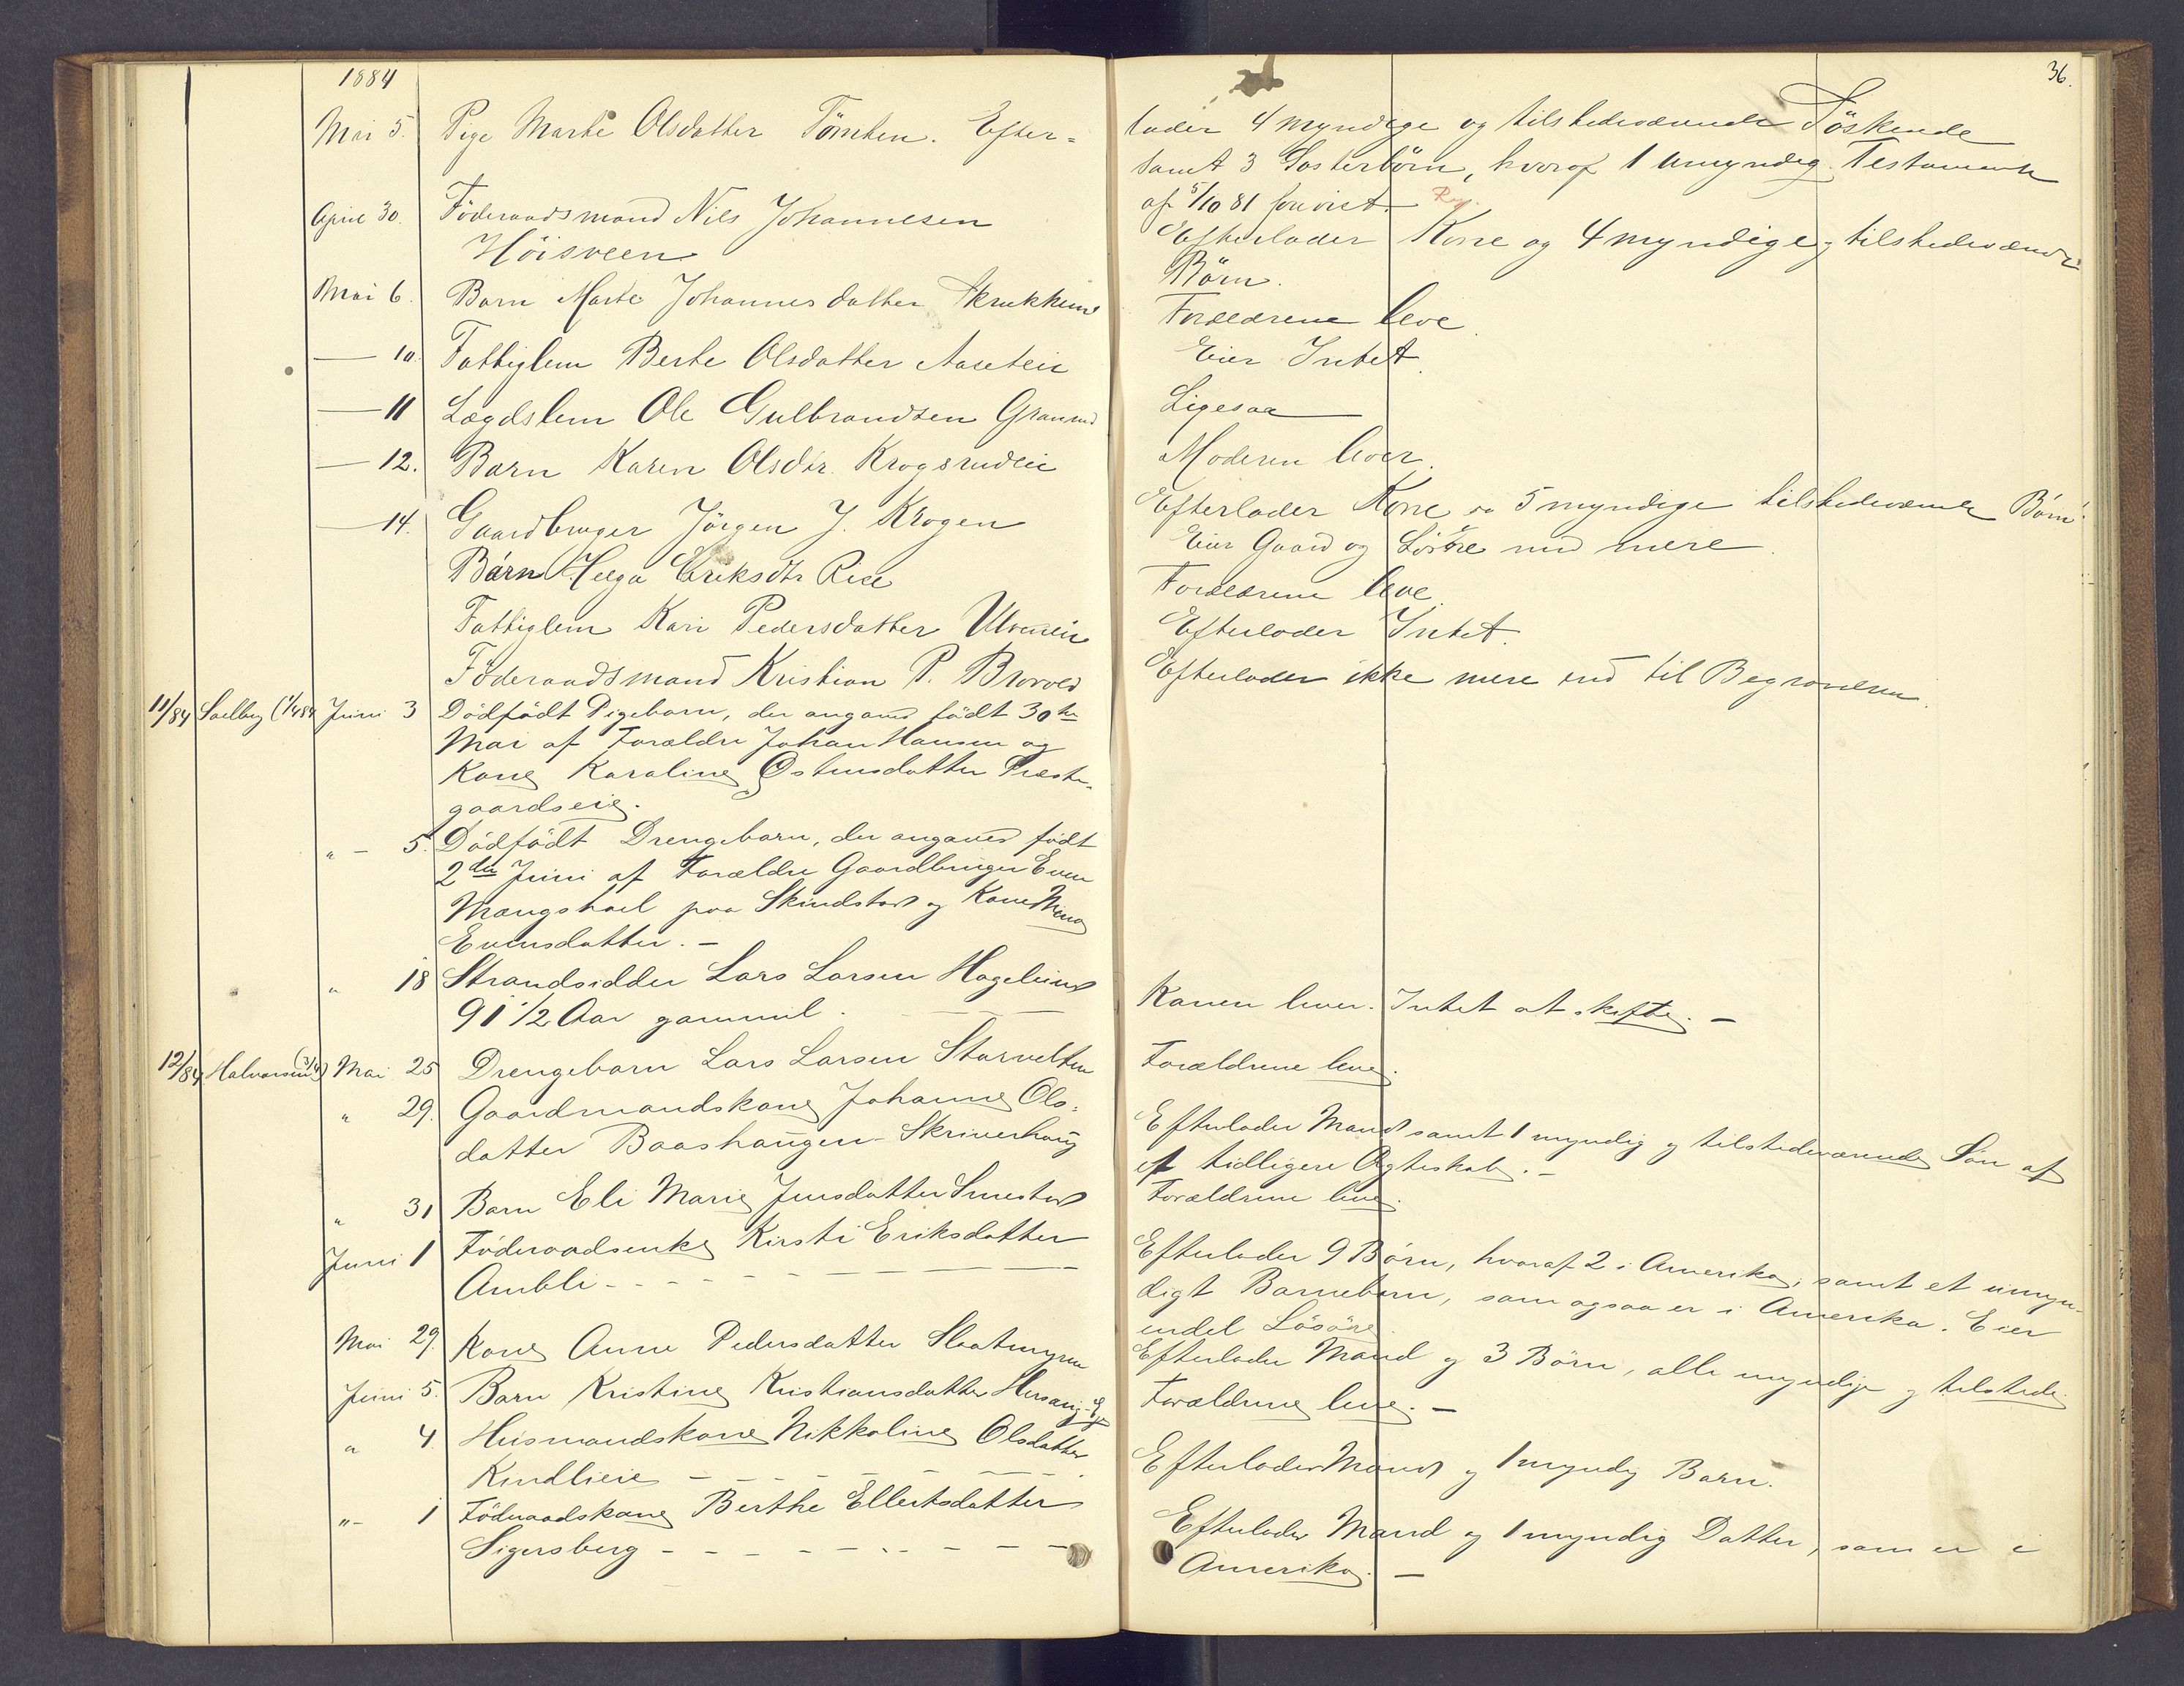 36.
1884
Mai 5. Pige Marte Olsdatter Tömten. Efter=
lader 4 myndige og tilstedeværende Söskende
samt 3 Sosterbörn, hvoraf 1 umyndig. Testament
af 5/10 81 forevist. Reg.
April 30. Föderaadsmand Nils Johannesen
Höisveen
Efterlader Kone og 4 myndige, tilstedeværende
Börn.
Mai 6. Barn Marte Johannesdatter Skrukkerud
Forældrene leve.
— 10. Fattiglem Berte Olsdatter Aaseteie
Eier Intet.
— 11 Lægdslem Ole Gulbrandsen Granrud
Ligesaa
— 12. Barn Karen Olsdtr. Krogsrudeie
Moderen lever.
— 14. Gaardbruger Jörgen J. Krogen
Efterlader Kone og 5 myndige tilstedeværende Börn.
Eier Gaard og Lösöre med mere.
Barn Helga Eriksdtr Rise
Forældrene leve.
Fattiglem Kari Pedersdatter Ulveneie
Efterlader Intet.
Föderaadsmand Kristian P. Brovold
Efterlader ikke mere end til Begravelsen.
11/84 Saelby (1/4 84 Juni 3 Dödfödt Pigebarn, der angaves födt 30te
Mai af Forældre Johan Hansen og
Kone Karoline Ostensdatter Præste-
gaardseie.
" — 5. Dödfödt Drengebarn, der angaves födt
2den Juni af Forældre Gaardbruger Even
Mængshoel paa Skindstad og Kone Mina
Evensdatter. —
" 18 Strandsidder Lars Larsen Hageleind
91 1/2 Aar gammel.
Konen lever. Intet at skifte. —
12/84 Halvorsen (3/4) Mai 25 Drengebarn Lars Larsen Storvelten
Forældrene leve.
" 29. Gaardmandskone Johanne Ols-
datter Baashaugen-Skriverhaug
Efterlader Mand samt 1 myndig og tilstedeværende Sön af
et tidligere Ægteskab. —
" 31 Barn Eli Marie Jensdatter Smestad
Forældrene leve.
Juni 1 Föderaadsenke Kirsti Eriksdatter
Ambli - - -
Efterlader 9 Börn, hvoraf 2 i Amerika, samt et umyn-
digt Barnebarn, som ogsaa er i Amerika. Eier
endel Lösöre.
Mai 29. Kone Anne Pedersdatter Slaatmyren
Efterlader Mand og 3 Börn, alle myndige og tilstede.
Juni 5. Barn Kristine Kristiansdatter Hersoug-Eje
Forældrene leve. —
" 4 Husmandskone Nikkoline Olsdatter
Kindlieie - - -
Efterlader Mand og 1 myndig Barn.
"- 1 Föderaadskone Berthe Ellertsdatter
Sigersberg - - -
Efterlader Mand og 1 myndig Datter, som er i
Amerika. —